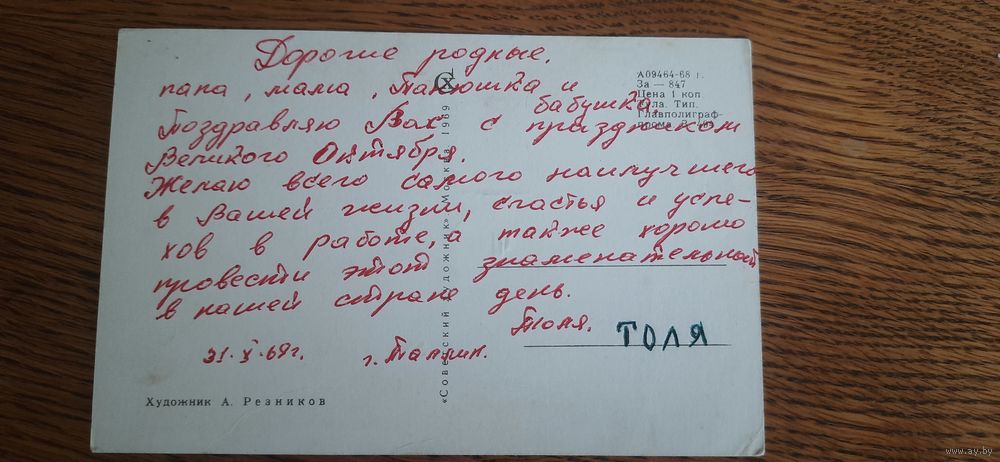 Дорогие родные,
папа, мама, Танюшка и
бабушка.
Поздравляю Вас с праздником
Великого Октября.
Желаю всего самого наилучшего
в Вашей жизни, счастья и успе-
хов в работе, а также хорошо
провести этот знаменательный
в нашей стране день.
Толя.
31.X.69г. г. Таллин.
ТОЛЯ
Художник А. Резников
«Советский художник» Москва 1969
А09464-68 г.
За — 847
Цена 1 коп
Тула. Тип.
Главполиграф-
www.ay.by